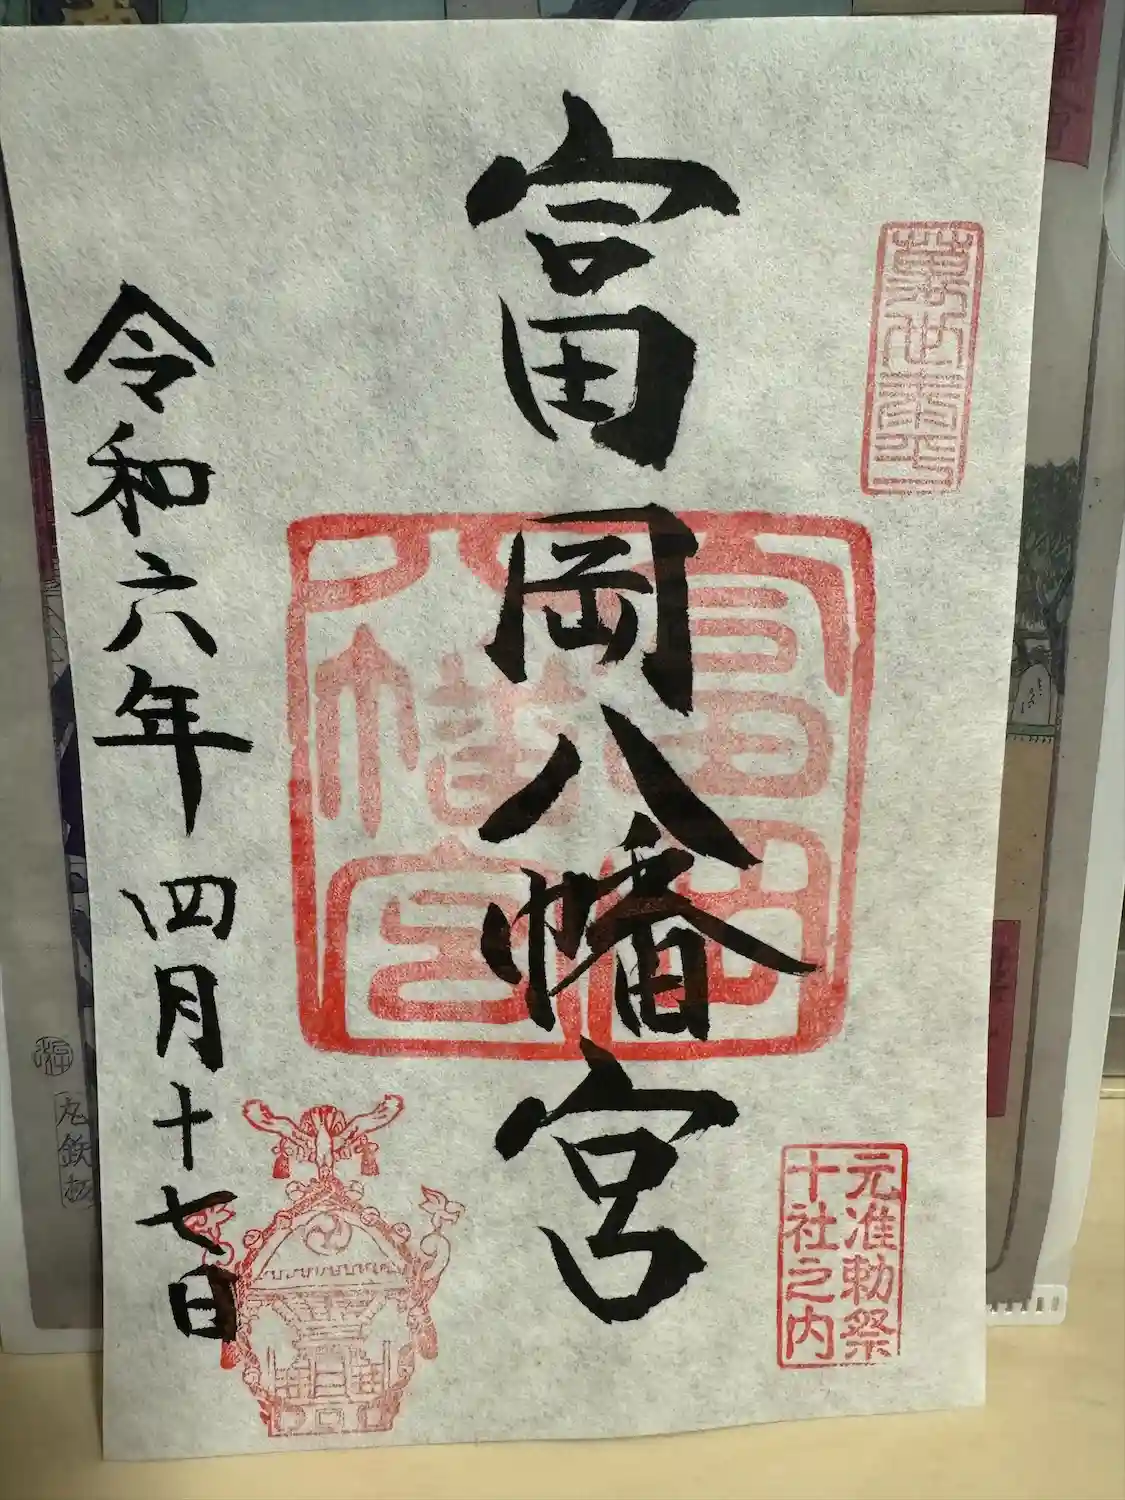 萬世泰平
富岡八幡宮
富岡
八幡宮
元准勅祭
十社之内
令和六年 四月十七日